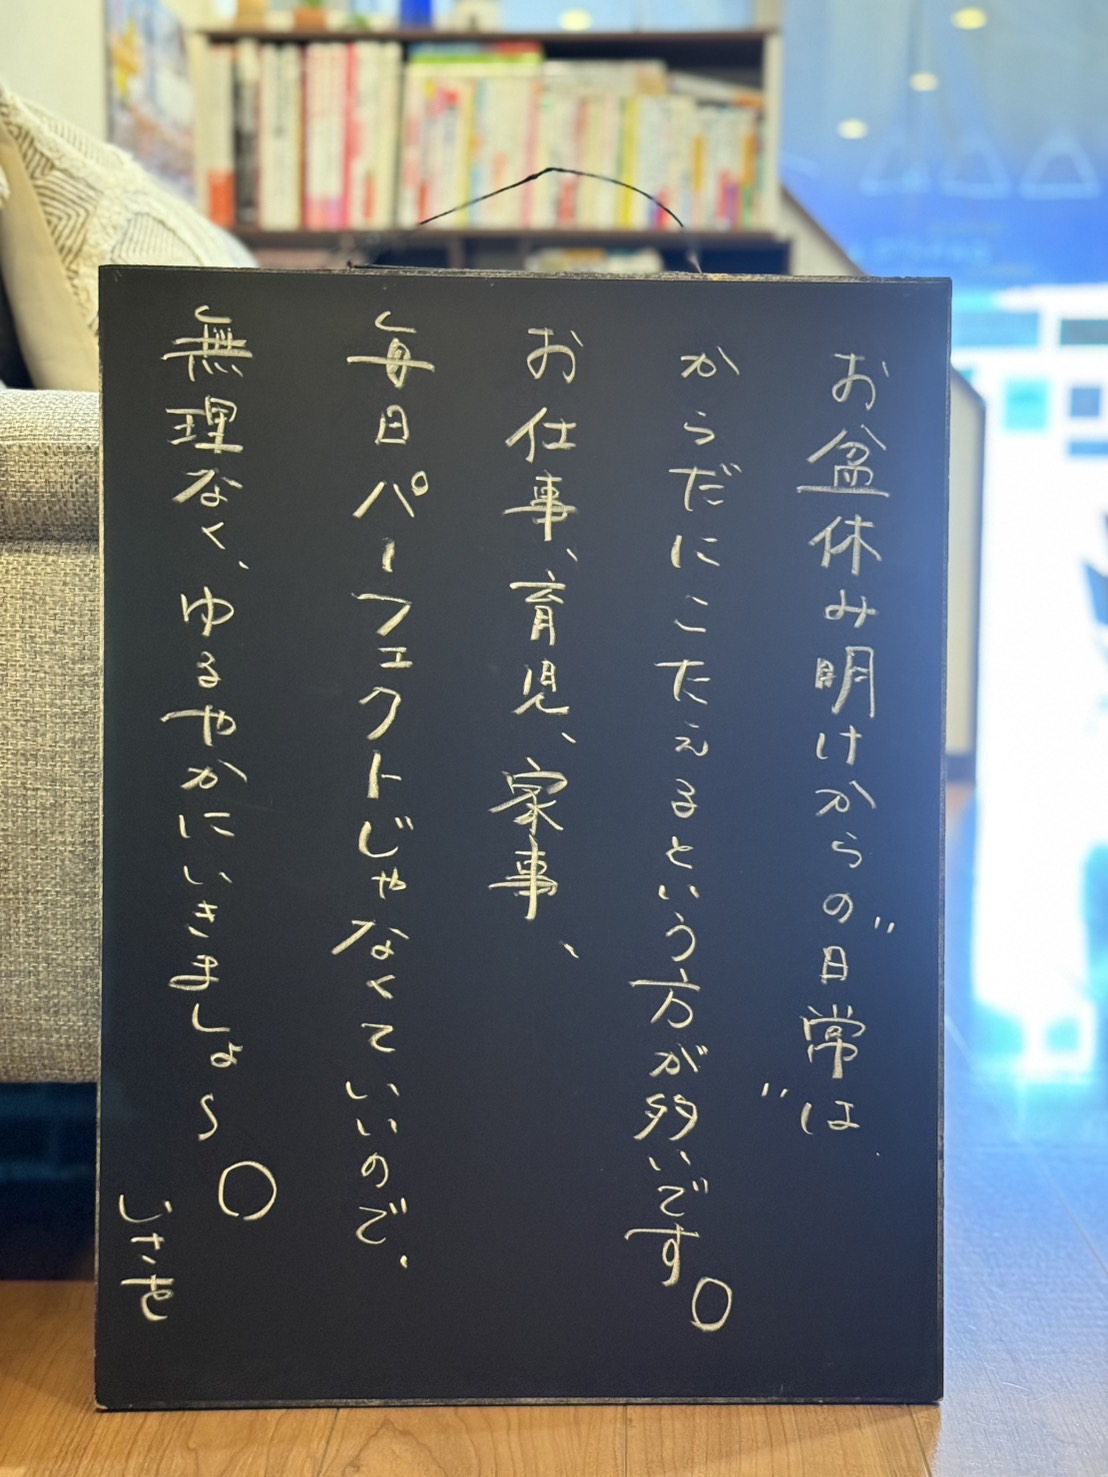 お盆休み明けからの"日常"は
からだにこたえるという方が多いです。
お仕事、育児、家事、
毎日パーフェクトじゃなくていいので、
無理なく、ゆるやかにいきましょ〜。
いさを